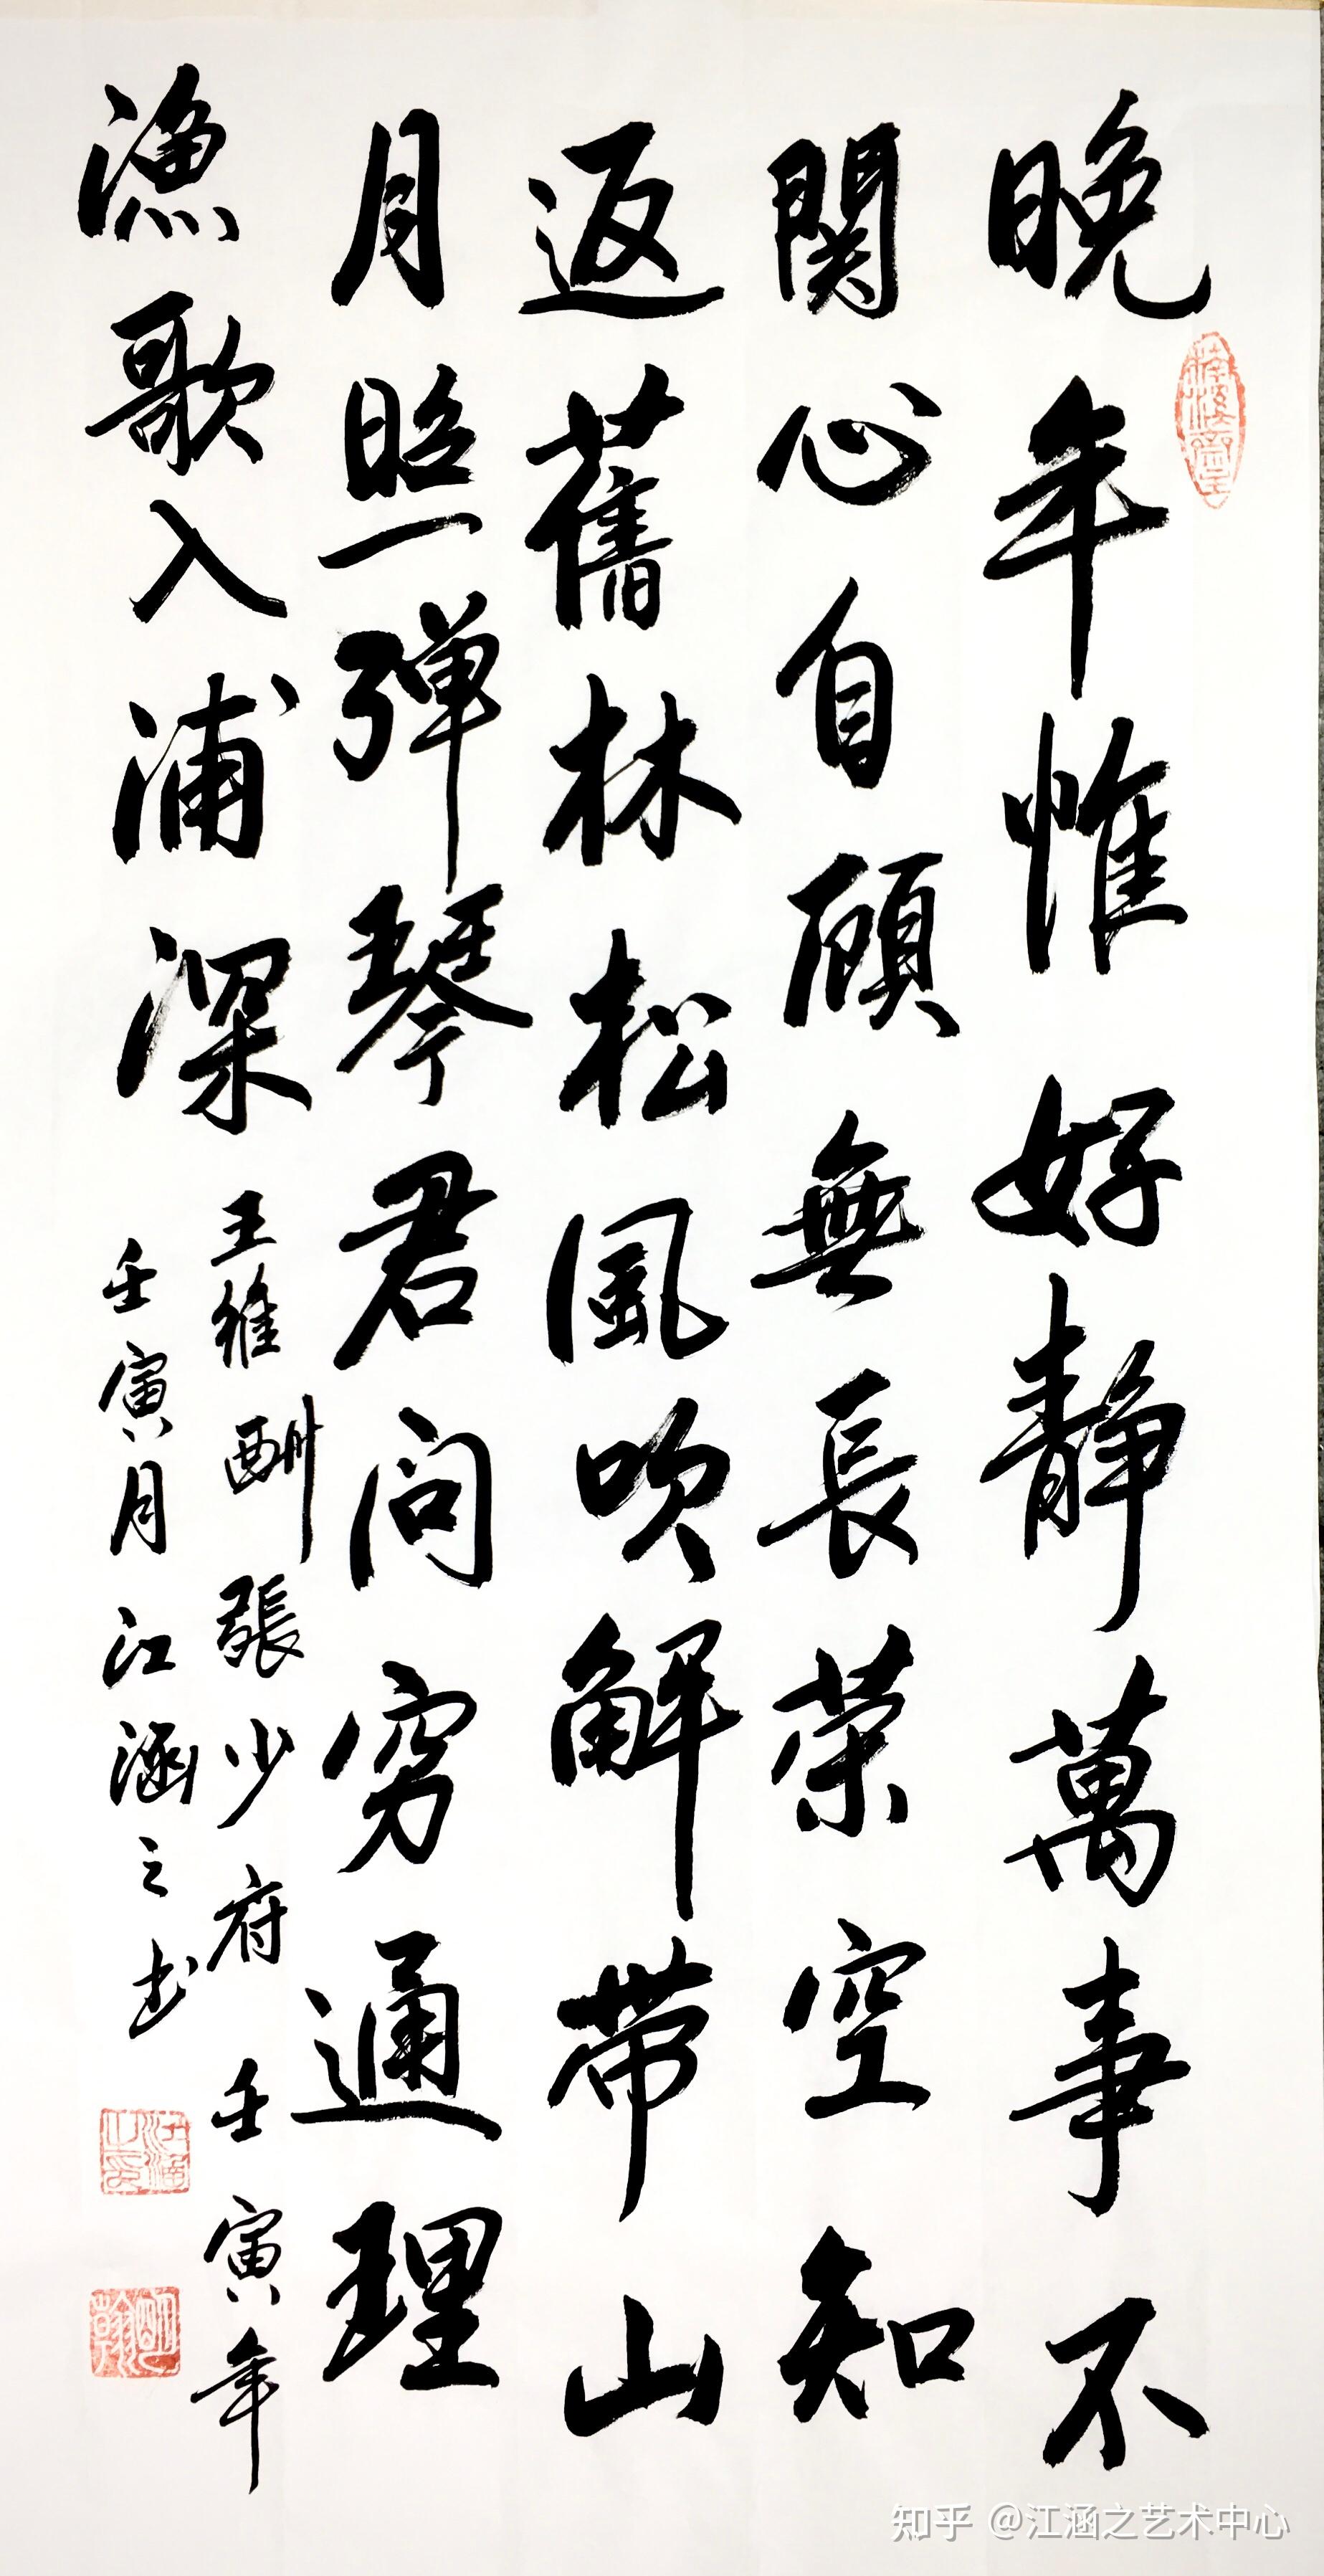 晚年惟好靜萬事不
関心自顧無長策空知
返舊林松風吹解帶山
月照弹琴君问穷通理
漁歌入浦深
王維酬張少府壬寅年
壬寅月江涵之书
江涵之印
知乎 @江涵之艺术中心